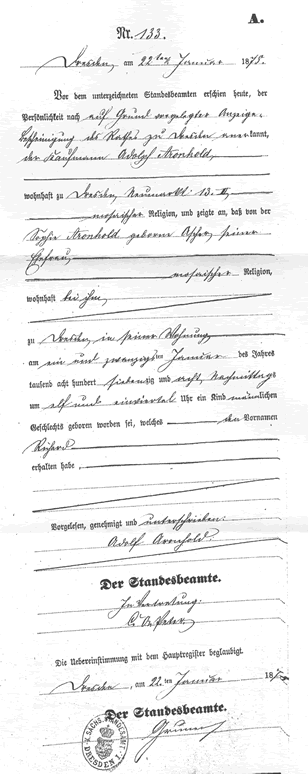 A.
Nr. 133.
Dresden, am 22ten Januar 1878.
Vor dem unterzeichneten Standesbeamten erschien heute, der
Persönlichkeit nach auf Grund vorgelegter Anzeige-
bescheinigung des Rathes zu Dresden anerkannt,
der Kaufmann Adolph Aronhold,
wohnhaft zu Dresden, Neumarkt 13. II,
mosaischer Religion, und zeigte an, daß von der
Sophie Aronhold geborne Ascher, seiner
Ehefrau,
mosaischer Religion,
wohnhaft bei ihm,
zu Dresden, in seiner Wohnung,
am ein und zwanzigsten Januar des Jahres
tausend acht hundert siebenzig und acht, Nachmittags
um elf und einviertel Uhr ein Kind männlichen
Geschlechts geboren worden sei, welches den Vornamen
Richard
erhalten habe
Vorgelesen, genehmigt und unterschrieben:
Adolf Aronhold.
Der Standesbeamte.
In Vertretung:
Peter.
Die Uebereinstimmung mit dem Hauptregister beglaubigt.
Dresden, am 22ten Januar 1878
Der Standesbeamte.
K. SÄCHS. STANDESAMT DRESDEN I.